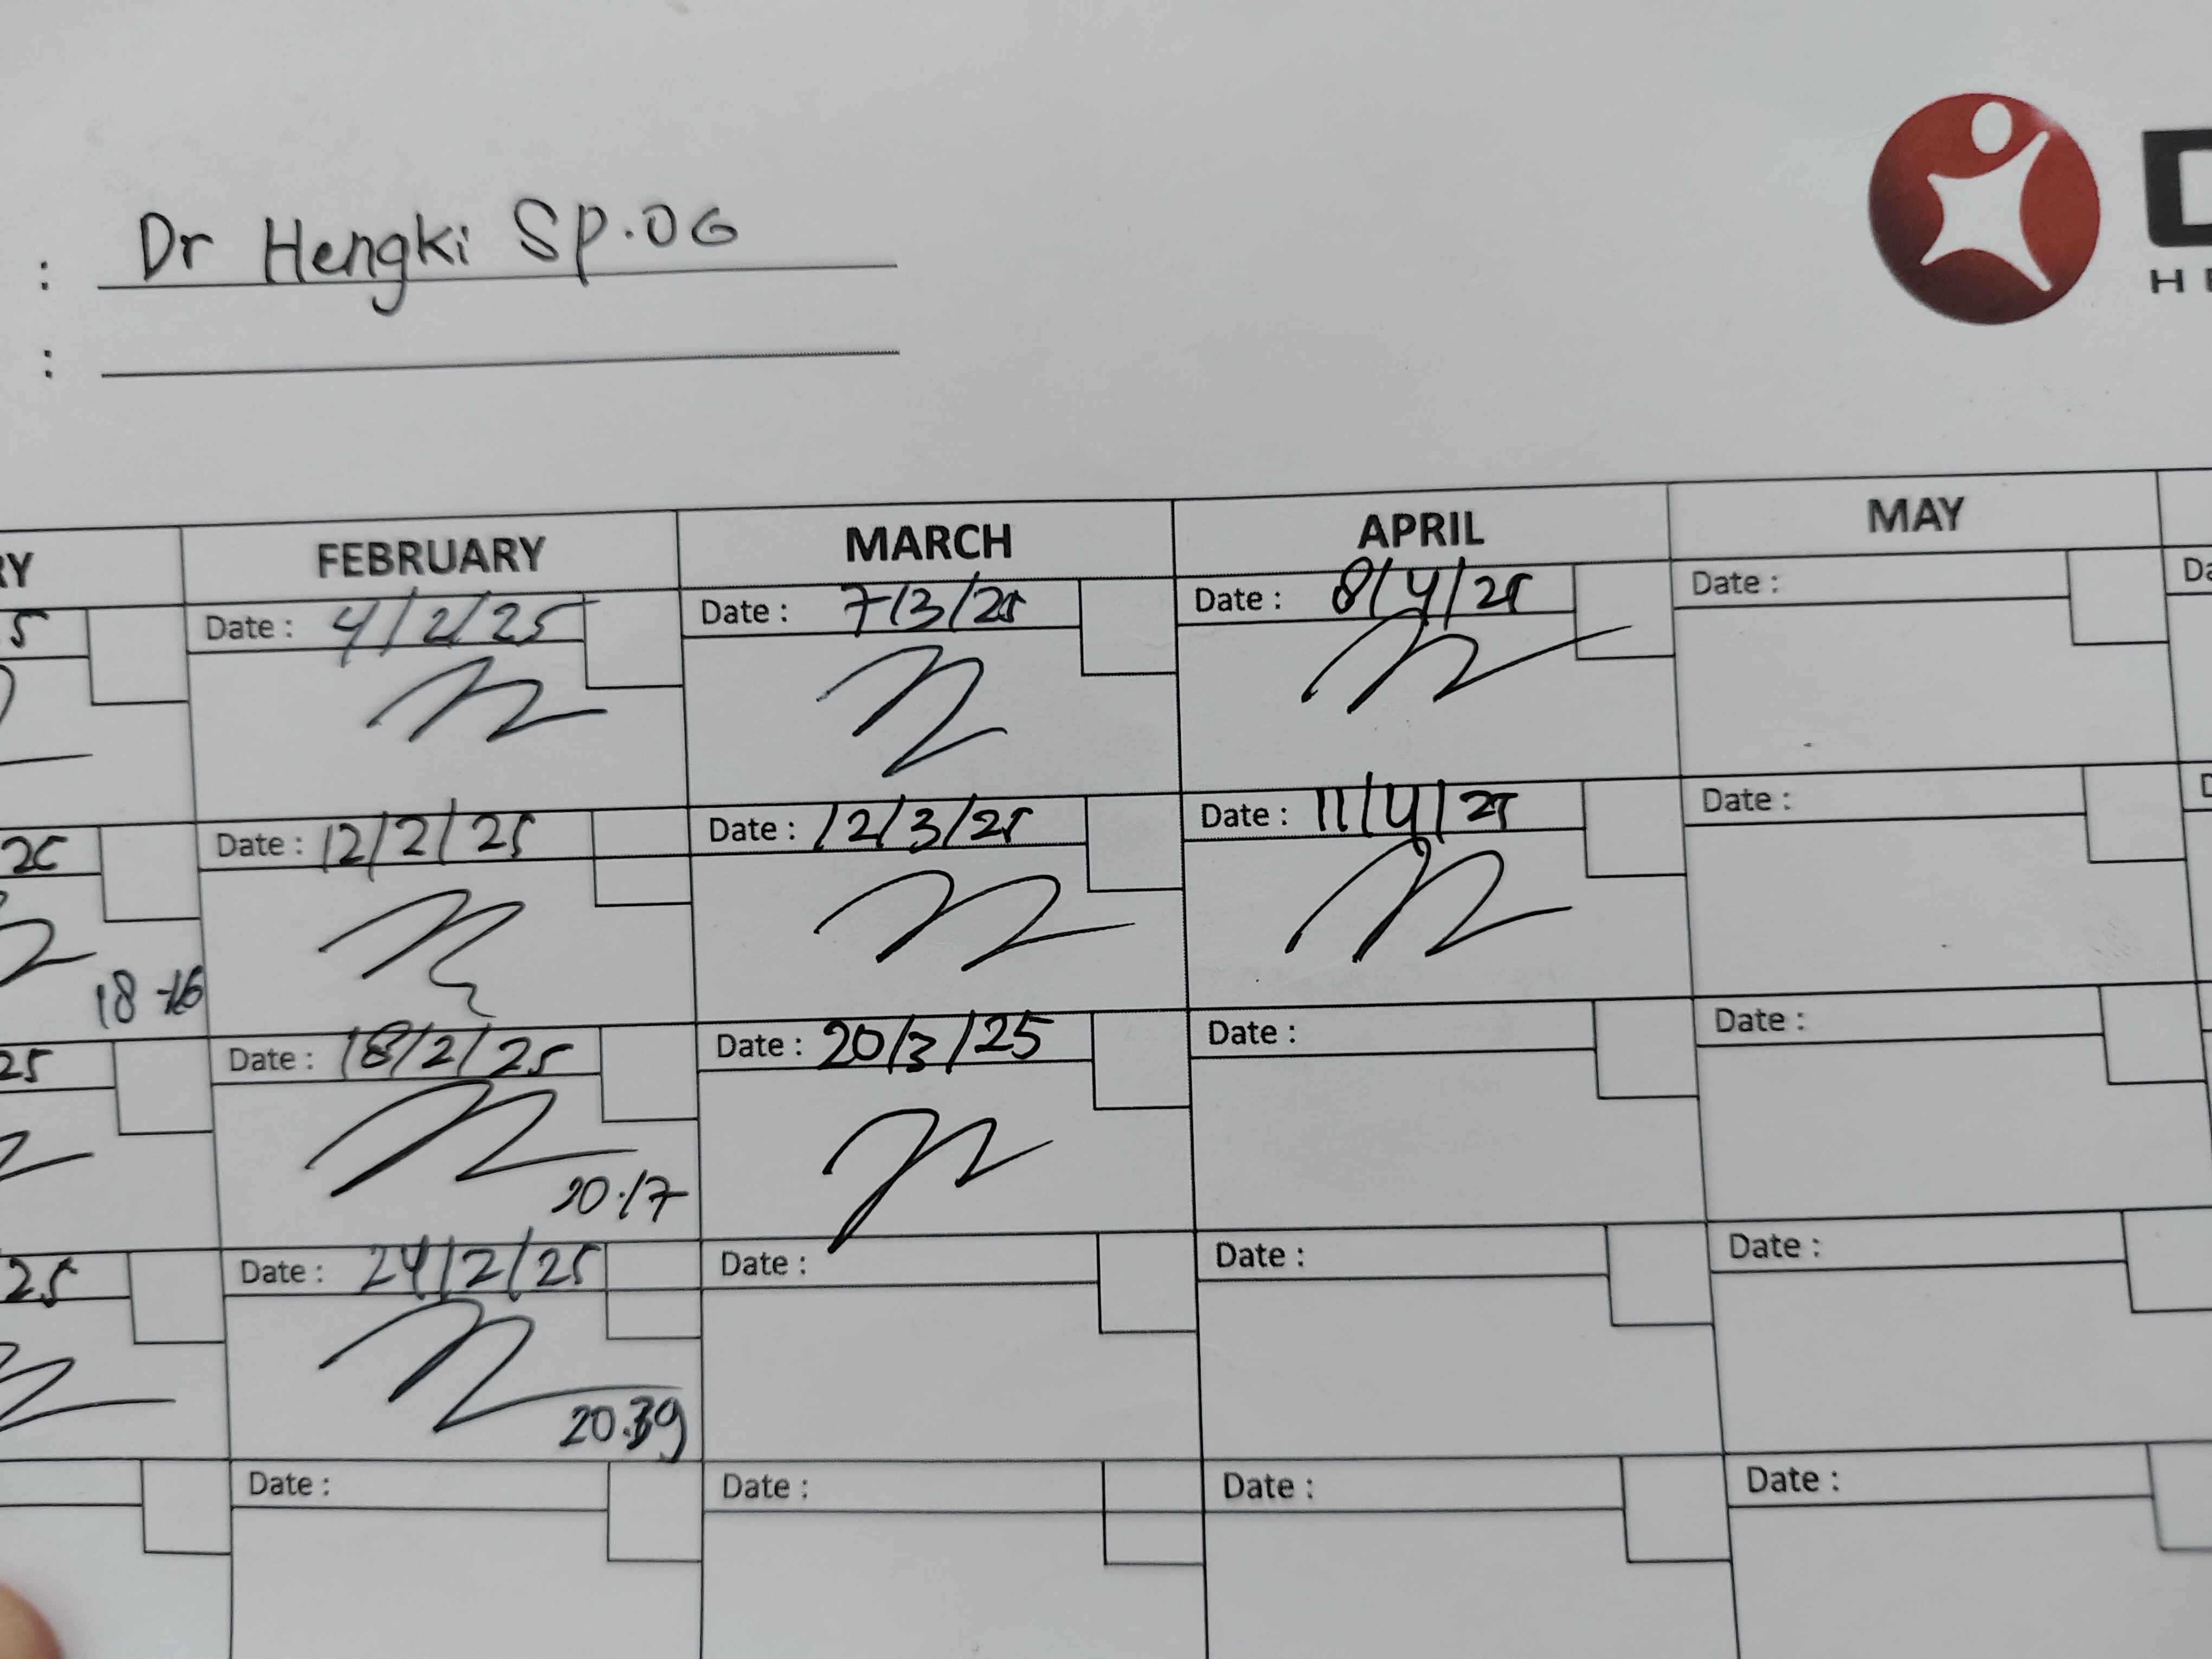 : Dr Hengki Sp.OG
:
D
HE
RY FEBRUARY MARCH APRIL MAY
5 Date : 4/2/25 Date : 7/3/25 Date : 8/4/25 Date : Da
25 Date : 12/2/25 Date : 12/3/25 Date : 11/4/25 Date : D
18
25 Date : 18/2/25 Date : 20/3/25 Date : Date :
20.17
25 Date : 24/2/25 Date : Date : Date :
20.39
Date : Date : Date : Date :